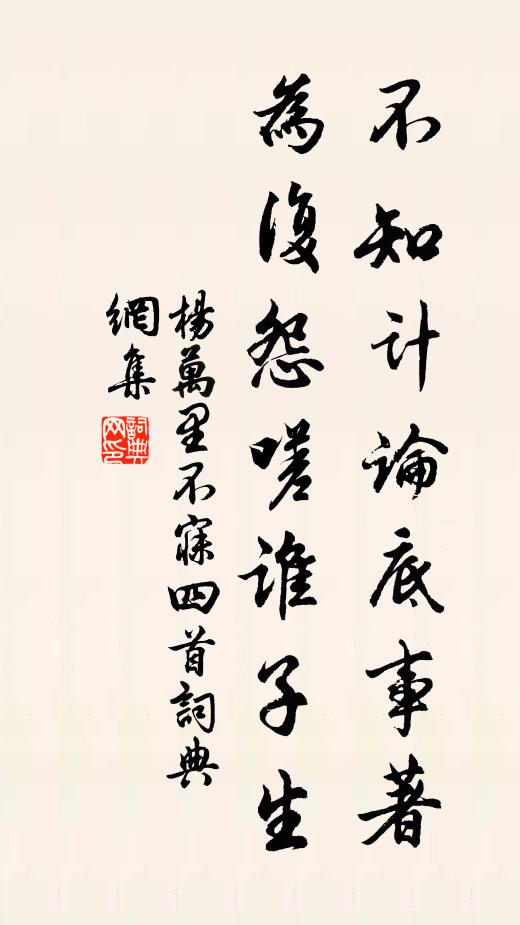 不知计論底事著
為復怨嗟誰子生
楊萬里不寐四首詞典
網集
詞典
网印